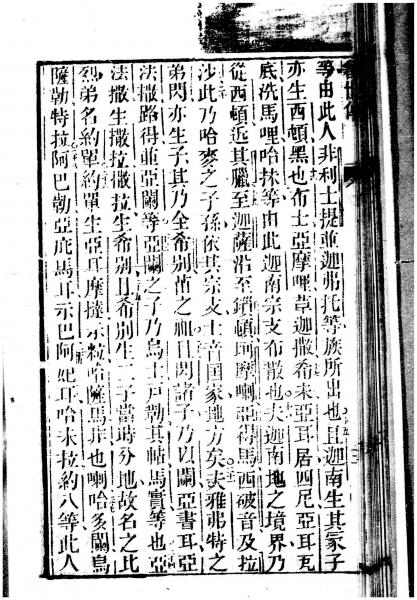 等由此人非利士提並迦弗托等族所出也且迦南生其冢子
亦生西頓黑也布士亞摩哩革迦撒希未亞耳居四尼亞耳瓦
底洗馬哩哈抹等由此迦南宗支布散也夫迦南地之境界乃
從西頓近其臘至迦薩沿至鎖頓坷摩喇亞得馬西破音及拉
沙此乃哈麥之子孫依其宗支土音國家地方矣夫雅弗特之
弟閃亦生子其乃全希別苗之祖且閃諸子乃以闌亞書耳亞
法撒路得並亞闌等亞闌之子乃烏士戶勒其帖馬實等也亞
法撒生撒拉撒拉生希別且希別生二子當時分地故名之比
烈弟名約單約單生亞耳摩撻示粒哈薩馬非也喇哈多闌烏
薩勒特拉阿巴勒亞庇馬耳示巴阿妃耳哈未拉約八等此人